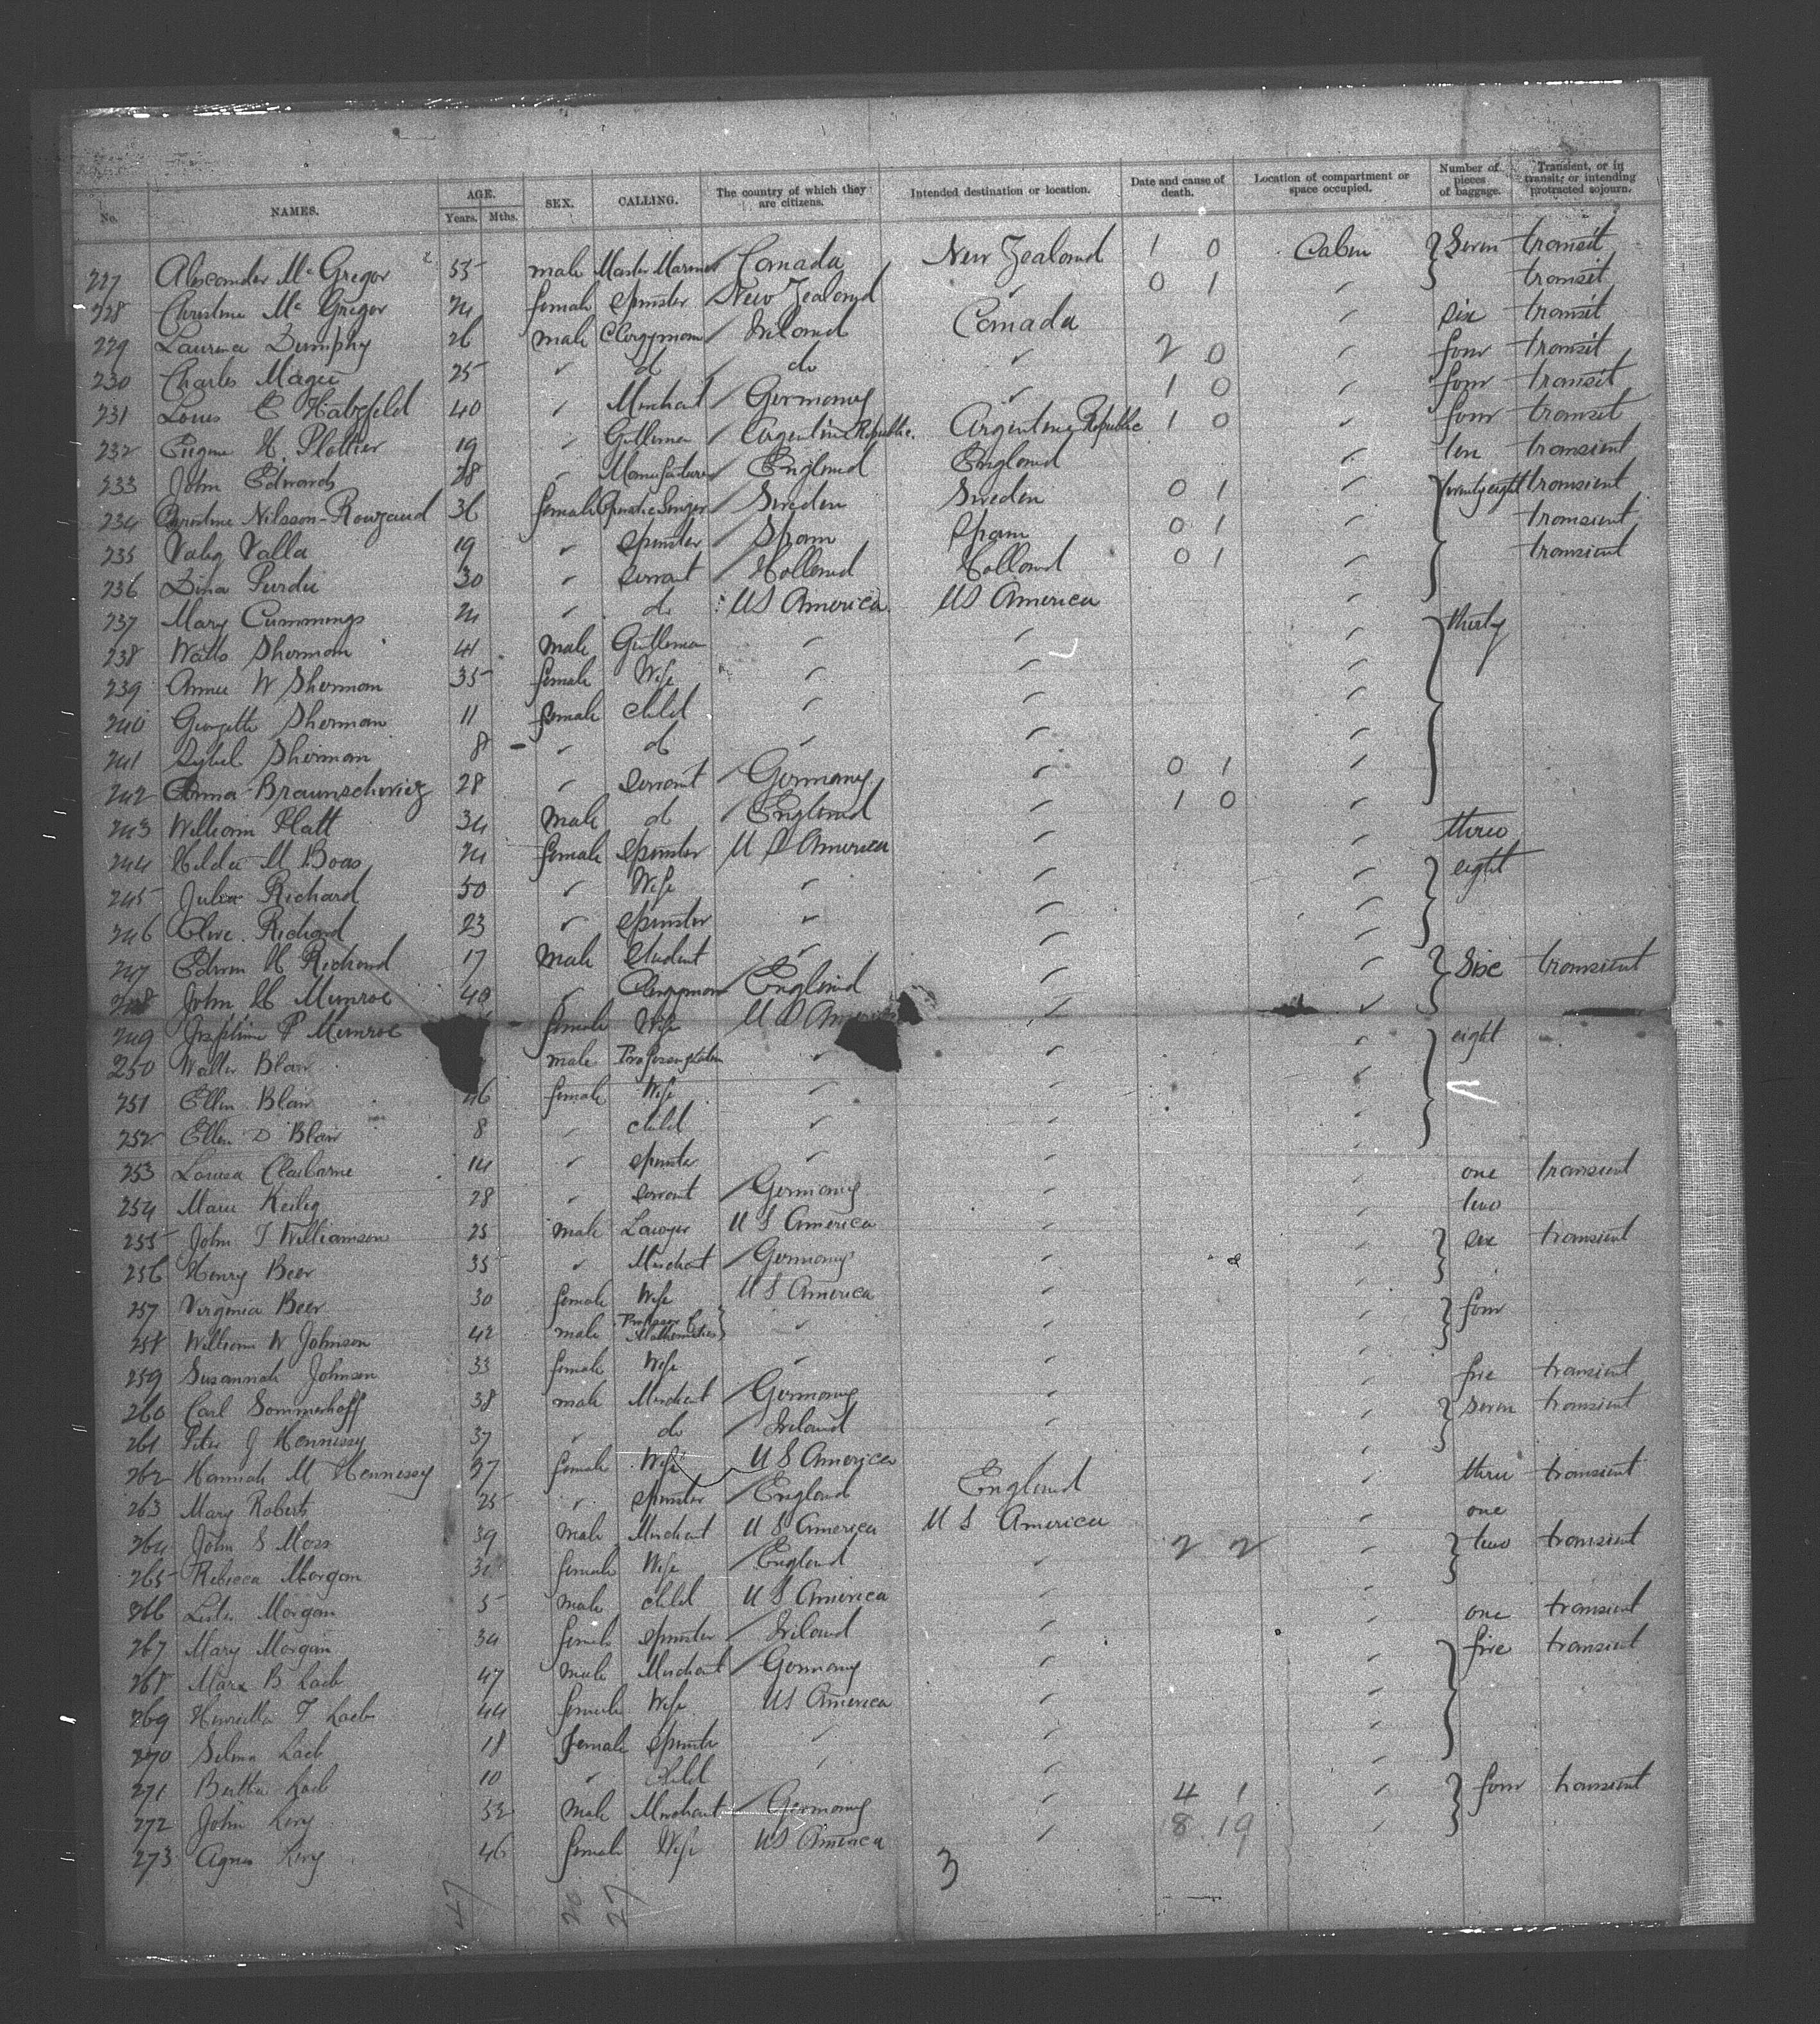 No. NAMES. AGE. Years. Mths. SEX. CALLING. The country of which they are citizens. Intended destination or location. Date and cause of death. Location of compartment or space occupied. Number of pieces of baggage. Transient, or in transit, or intending protracted sojourn.
227 Alexander Mc Gregor 55 male Master Mariner Canada New Zealand 1 0 Cabin Seven transit
228 Christina Mc Gregor 24 female Spinster New Zealand " 0 1 " transit
229 Laurence Dumphy 26 male Clergyman Ireland Canada " six transit
230 Charles Magee 25 " do do " 2 0 " four transit
231 Louis E Hatzfeld 40 " Merchant Germany " 1 0 " four transit
232 Eugene H. Plottier 19 " Gentleman Argentine Republic. Argentine Republic 1 0 " four transit
233 John Edwards 28 " Manufacturer England England " ten transient
234 Christine Nilsson-Rouzaud 36 female Operatic Singer Sweden Sweden 0 1 " twenty eight transient
235 Valla 19 " Spinster Spain Spain 0 1 " transient
236 Dina Purdie 30 " Servant Holland Holland 0 1 " transient
237 Mary Cummings 24 " do US America US America "
238 Watts Sherman 41 male Gentleman " " " thirty
239 Annie W Sherman 35 female Wife " " "
240 Georgette Sherman 11 female child " " "
241 Sybil Sherman 8 " do " " "
242 Anna Braunschweig 28 " Servant Germany " 0 1 "
243 William Platt 34 male do England " 1 0 "
244 Hilda M Boas 24 female Spinster U S America " " three
245 Julia Richard 50 " Wife " " " eight
246 Olive Richard 23 " Spinster " " "
247 Edwin H Richard 17 male Student " " "
248 John H Munroe 40 " Clergyman England " " Six transient
249 Josephine P Munroe female Wife U S America " "
250 Walter Blair male " " " eight
251 Ellen Blair 46 female Wife " " "
252 Ellen D Blair 8 " child " " "
253 Louisa Claiborne 14 " Spinster " " " one transient
254 Marie Keilig 28 " Servant Germany " " two
255 John T Williamson 25 male Lawyer U S America " " six transient
256 Henry Beer 35 " Merchant Germany " "
257 Virginia Beer 30 female Wife U S America " " four
258 William W Johnson 42 male Professor of Mathematics " " "
259 Susannah Johnson 33 female Wife " " " five transient
260 Carl Sommerhoff 38 male Merchant Germany " " seven transient
261 Peter J Hennessy 37 " do Ireland " "
262 Hannah M Hennessy 37 female Wife U S America " " three transient
263 Mary Roberts 25 " Spinster England England " one
264 John S Moss 39 male Merchant U S America U S America " two transient
265 Rebecca Morgan female Wife England " 2 2 "
266 Lester Morgan 5 male child U S America " " one transient
267 Mary Morgan 34 female Spinster Ireland " " five transient
268 Marx B Loeb 47 male Merchant Germany " "
269 Henrietta F Loeb 44 female Wife US America " "
270 Selma Loeb 18 female Spinster " " "
271 Bertha Loeb 10 " child " " " four transient
272 John Levy 52 male Merchant Germany " 4 1 "
273 Agnes Levy 46 female Wife US America " 8 19 "
3
47 20 27